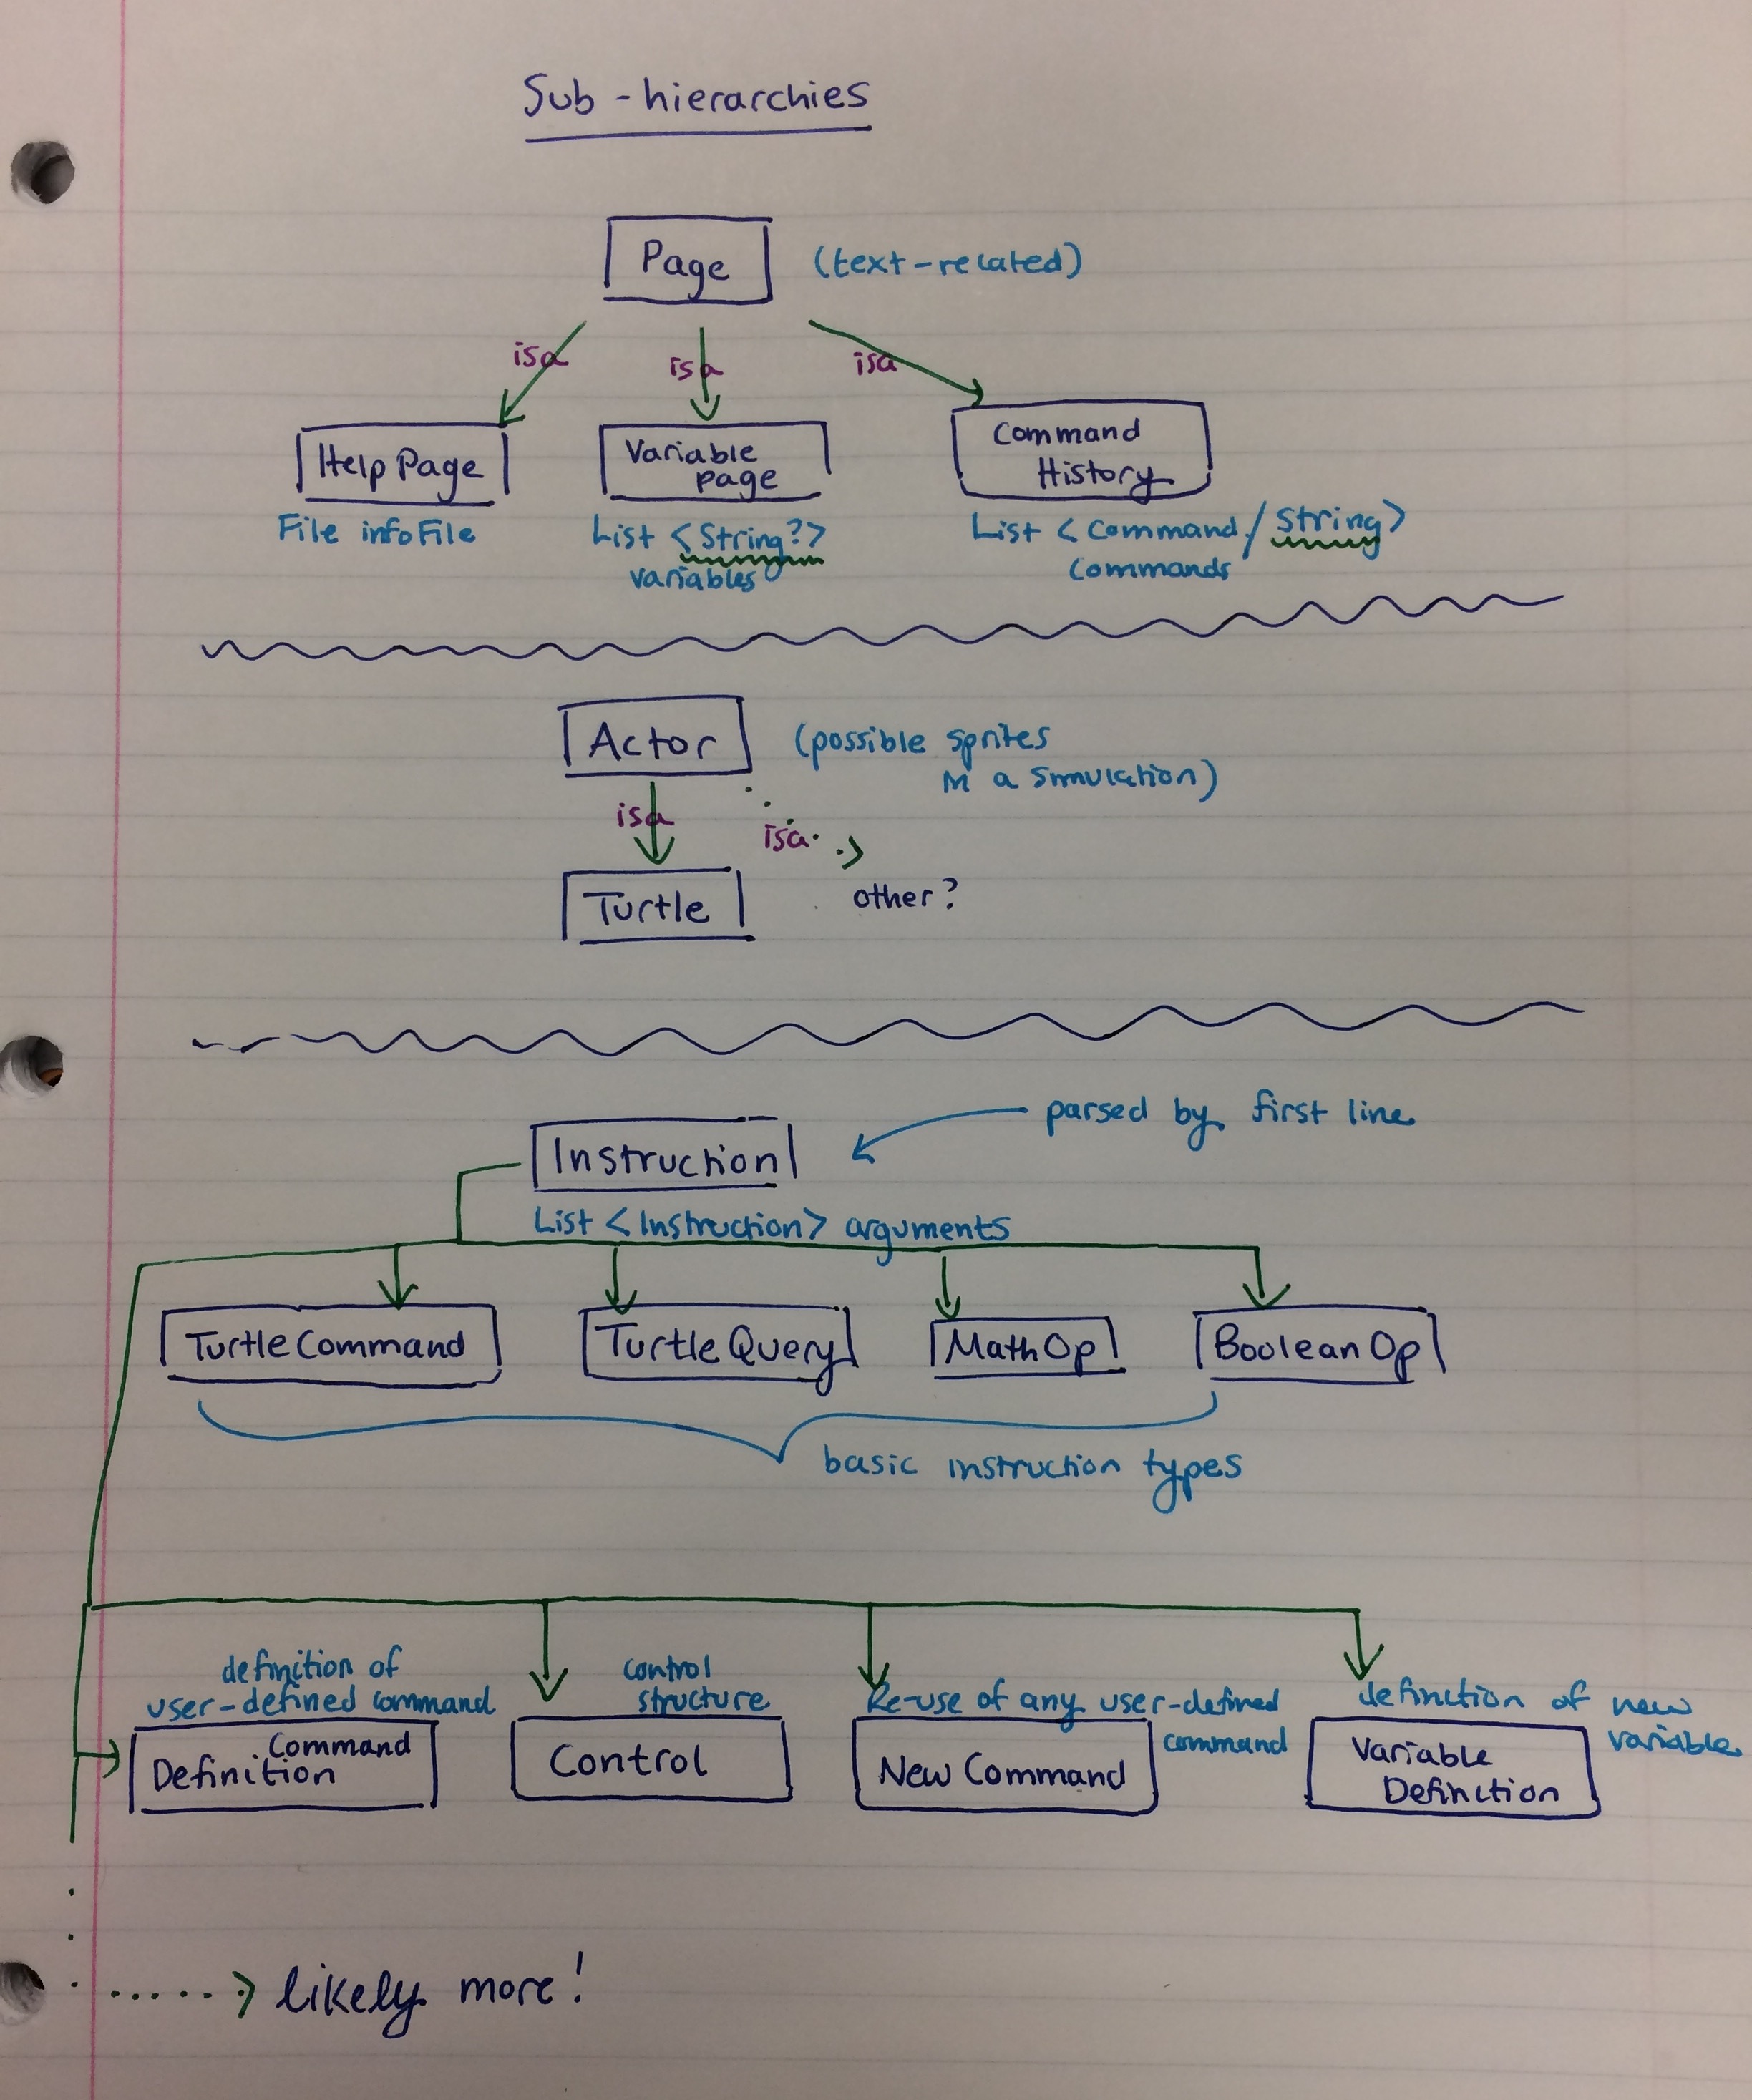 Sub-hierarchies
Page
(text-related)
isa
isa
isa
Help Page
Variable
page
Command
History
File infoFile
List <String?>
variables
List <Command/String>
Commands
Actor
(possible sprites
in a simulation)
isa
isa
Turtle
other?
Instruction
parsed by first line
List <Instruction> arguments
TurtleCommand
TurtleQuery
MathOp
BooleanOp
basic instruction types
definition of
user-defined command
Command
Definition
control
structure
Control
Re-use of any user-defined
command
New Command
definition of new
variable
Variable
Definition
likely more!